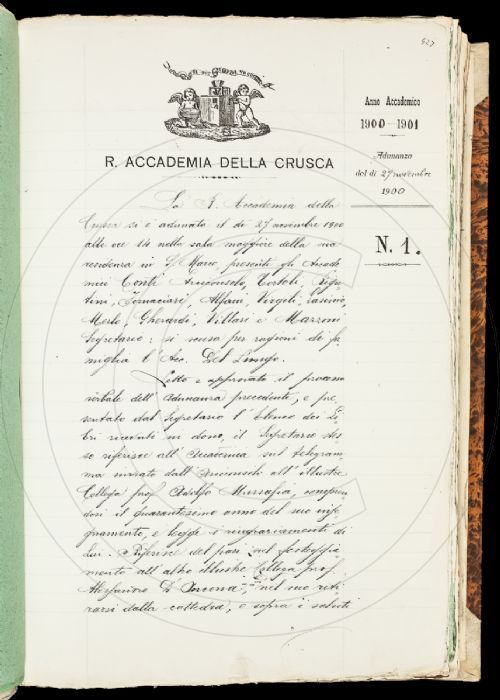 527
IL PIÙ BEL FIOR NE COGLIE
R. ACCADEMIA DELLA CRUSCA
Anno Accademico
1900-1901
Adunanza
del dì 27 novembre
1900
N. 1.
La R. Accademia della
Crusca si è adunata il dì 27 novembre 1900
alle ore 14 nella sala maggiore della sua
residenza in S. Marco, presenti gli Accade
mici Conti Arciconsolo, Tortoli, Rigu-
tini, Fornaciari, Alfani, Vergoti, Rasinio,
Merlo, Gherardi, Villari e Mazzoni
Segretario: si scusa per ragioni di fa
miglia l'Acc. Del Lungo.
Letto e approvato il processo
verbale dell'adunanza precedente, e pre
sentato dal Segretario l'elenco dei Li-
bri ricevuti in dono, il Segretario stes
so riferisce all'Accademia sul telegram-
ma inviato dall'Arciconsolo all'illustre
Collega prof. Adolfo Mussafia, compien
dosi il quarantesimo anno del suo inse
gnamento, e legge i ringraziamenti di
Lui. Riferisce del pari sul festeggia
mento all'altro illustre Collega prof.
Alessandro D'Ancona, nel suo riti
rarsi dalla cattedra, e sopra i saluti